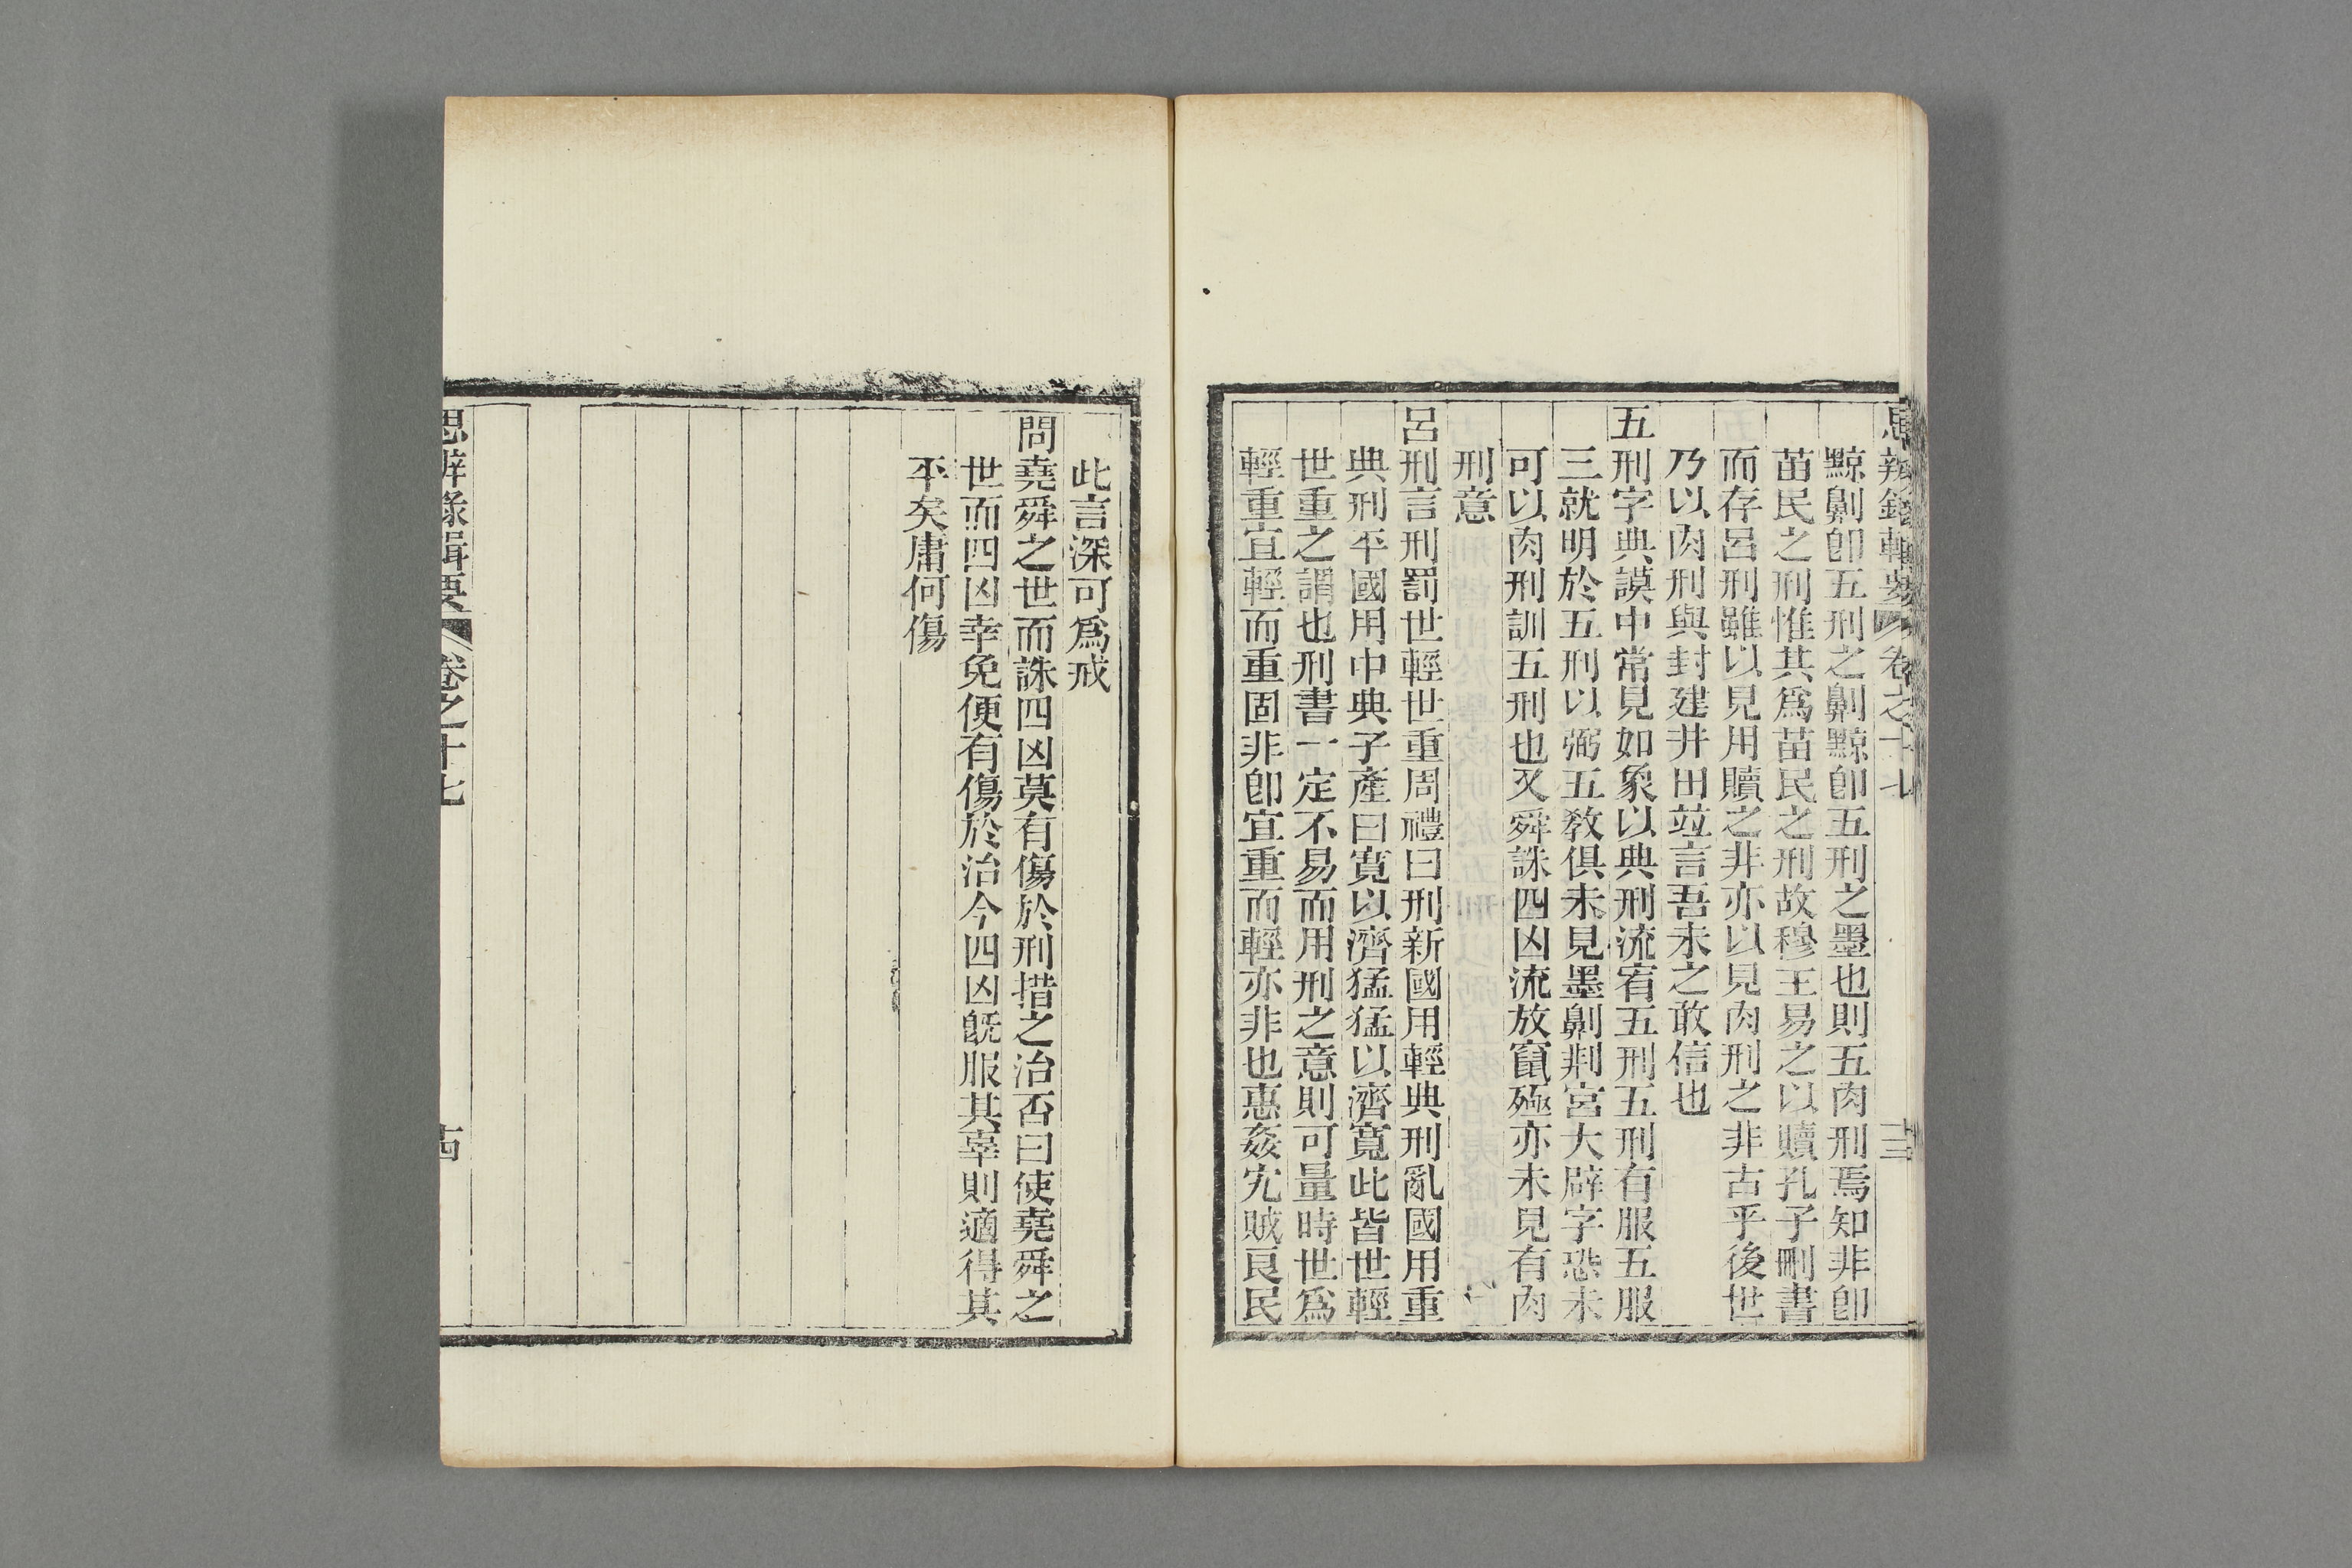 思辨錄輯要 卷之十七 十三
黥劓卽五刑之劓黥卽五刑之墨也則五肉刑焉知非卽
苗民之刑惟其爲苗民之刑故穆王易之以贖孔子刪書
而存呂刑雖以見用贖之非亦以見肉刑之非古乎後世
乃以肉刑與封建井田竝言吾未之敢信也
五刑字典謨中常見如象以典刑流宥五刑五刑有服五服
三就明於五刑以弼五敎俱未見墨劓剕宮大辟字恐未
可以肉刑訓五刑也又舜誅四凶流放竄殛亦未見有肉
刑意
呂刑言刑罰世輕世重周禮曰刑新國用輕典刑亂國用重
典刑平國用中典子產曰寬以濟猛猛以濟寬此皆世輕
世重之謂也刑書一定不易而用刑之意則可量時世爲
輕重宜輕而重固非卽宜重而輕亦非也惠姦宄賊良民
此言深可爲戒
問堯舜之世而誅四凶莫有傷於刑措之治否曰使堯舜之
世而四凶幸免便有傷於治今四凶旣服其辜則適得其
平矣庸何傷
思辨錄輯要 卷之十七 十四